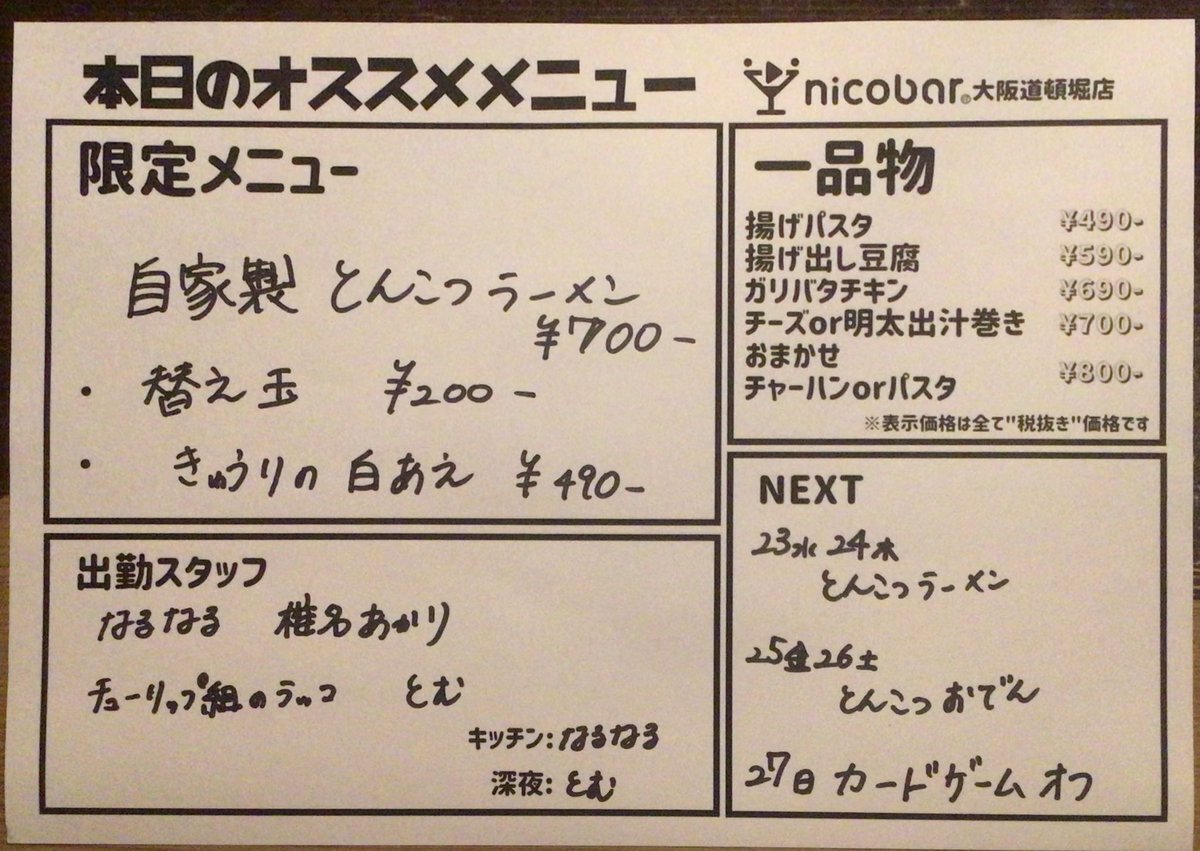 本日のオススメメニュー
nicobar® 大阪道頓堀店
限定メニュー
自家製 とんこつラーメン
¥700-
・ 替え玉 ¥200-
・ きゅうりの白あえ ¥490-
一品物
揚げパスタ ¥490-
揚げ出し豆腐 ¥590-
ガリバタチキン ¥690-
チーズor明太出汁巻き ¥700-
おまかせ
チャーハンorパスタ ¥800-
※表示価格は全て"税抜き"価格です
出勤スタッフ
なるなる 椎名あかり
チューリップ組のラッコ とむ
キッチン:なるなる
深夜:とむ
NEXT
23水 24木
とんこつラーメン
25金 26土
とんこつおでん
27日 カードゲームオフ